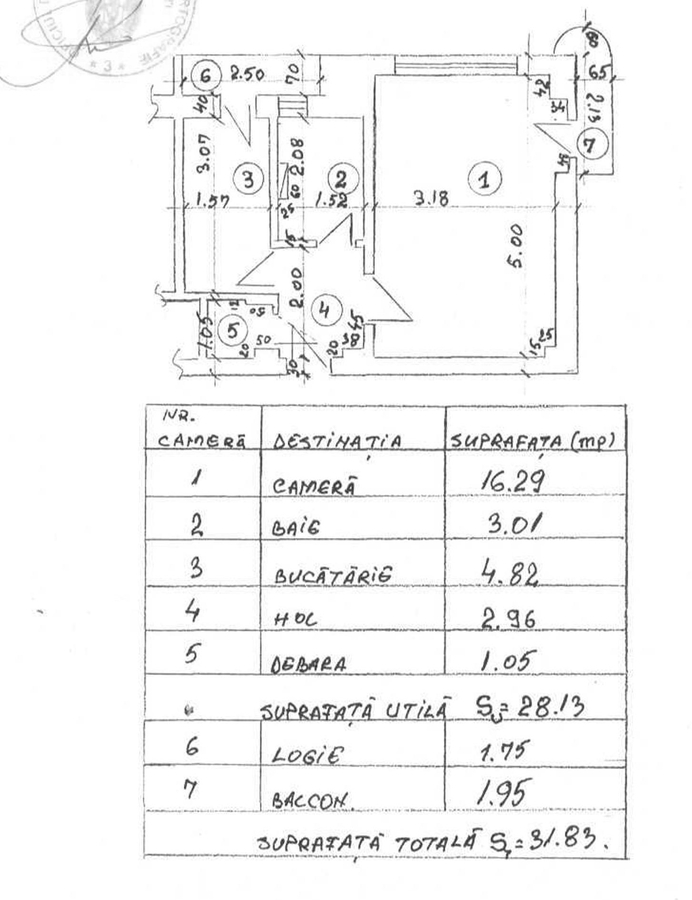 * 3 *
6
2.50
70
40
3.07
3
1.57
2.08
60
25
2
1.52
15
1
3.18
5.00
42
65
2.13
7
2.00
4
5
1.05
12
50
20
30
20
38
45
15
25
NR.
CAMERĂ DESTINAȚIA SUPRAFAȚA (mp)
1 CAMERĂ 16.29
2 BAIE 3.01
3 BUCĂTĂRIE 4.82
4 HOL 2.96
5 DEBARA 1.05
SUPRAFAȚĂ UTILĂ Su= 28.13
6 LOGIE 1.75
7 BALCON. 1.95
SUPRAFAȚĂ TOTALĂ ST= 31.83.